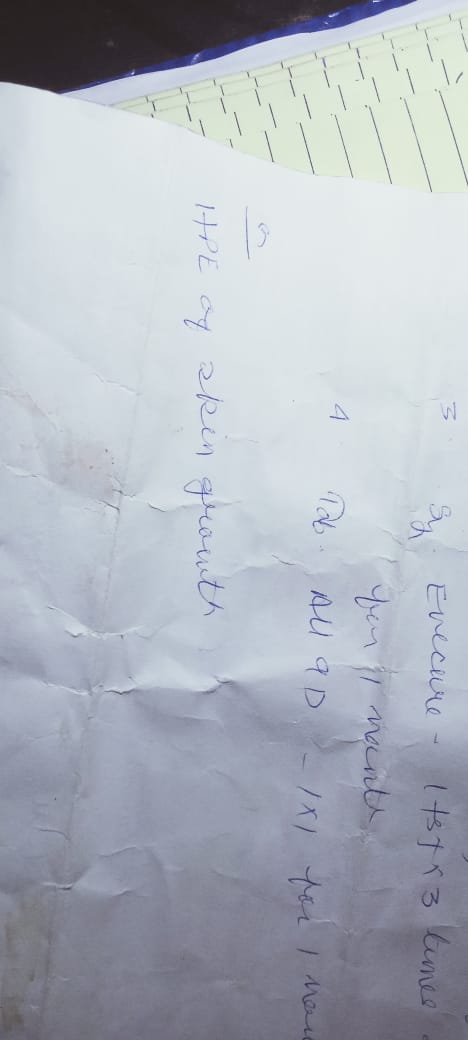 3. Sy. Evecare - 1 tsf x 3 times
for 1 month
4. Tab. All 9 D - 1x1 for 1
a
HPE of skin growth